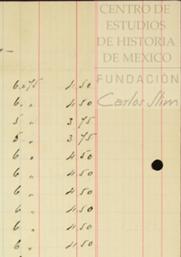 CENTRO DE
ESTUDIOS
DE HISTORIA
DE MEXICO
FUNDACIÓN
Carlos Slim
6 " 75 4.50
6 " 4.50
5 " 3.75
5 " 3.75
6 " 4.50
6 " 4.50
6 " 4.50
6 " 4.50
6 " 4.50
6 " 4.50